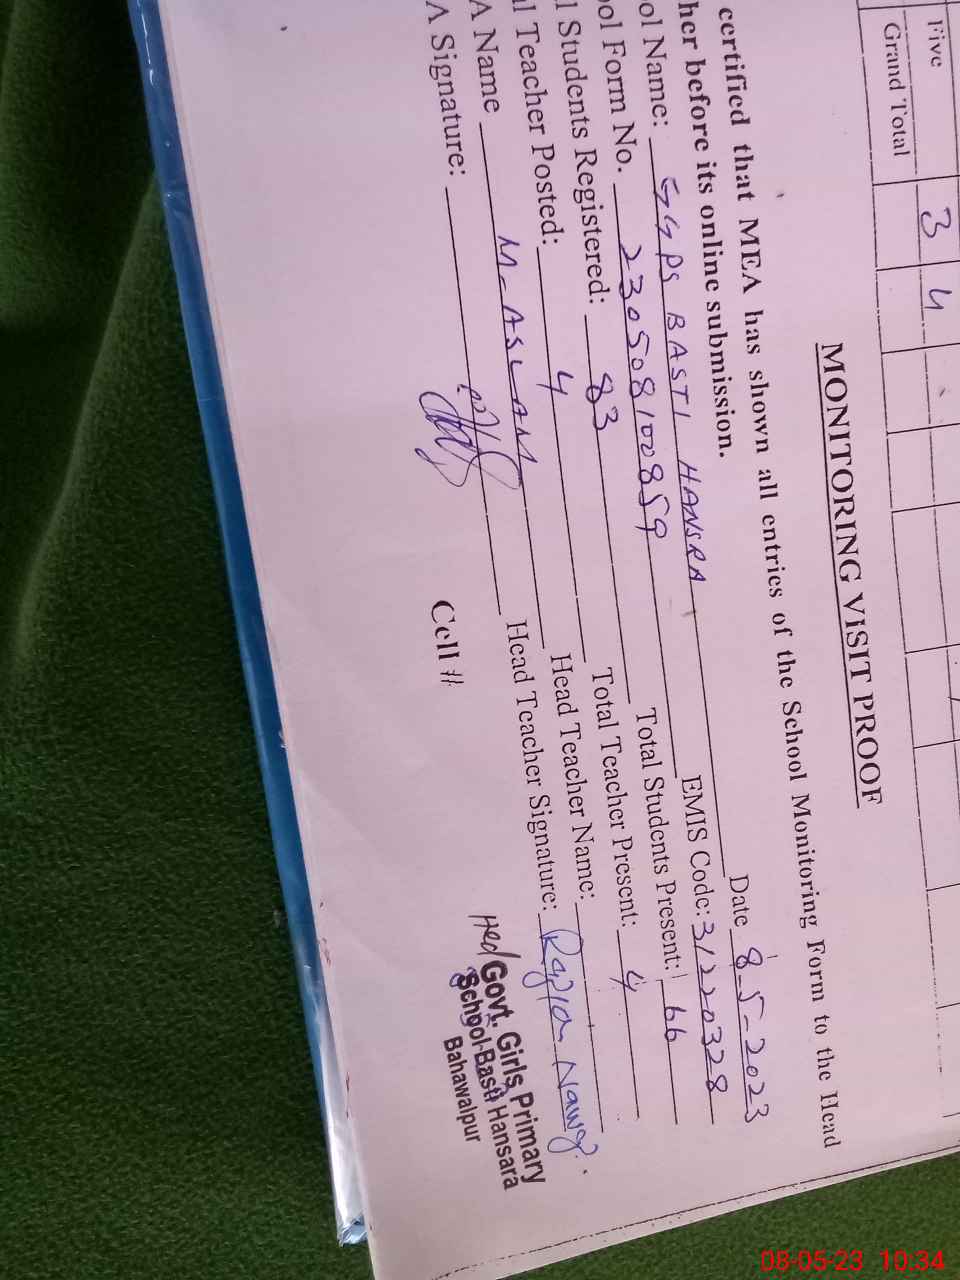 Five 3 4
Grand Total
MONITORING VISIT PROOF
certified that MEA has shown all entries of the School Monitoring Form to the Head
her before its online submission.
Date 8-5-2023
ol Name: GGPS BASTI HANSRA EMIS Code: 31220328
ol Form No. 230508100859 Total Students Present: 66
l Students Registered: 83 Total Teacher Present: 4
l Teacher Posted: 4 Head Teacher Name:
A Name M-ASLAM Head Teacher Signature: Razia Nawaz
A Signature:
Cell #
Head Govt. Girls Primary
School-Basti Hansara
Bahawalpur
08-05-23 10:34